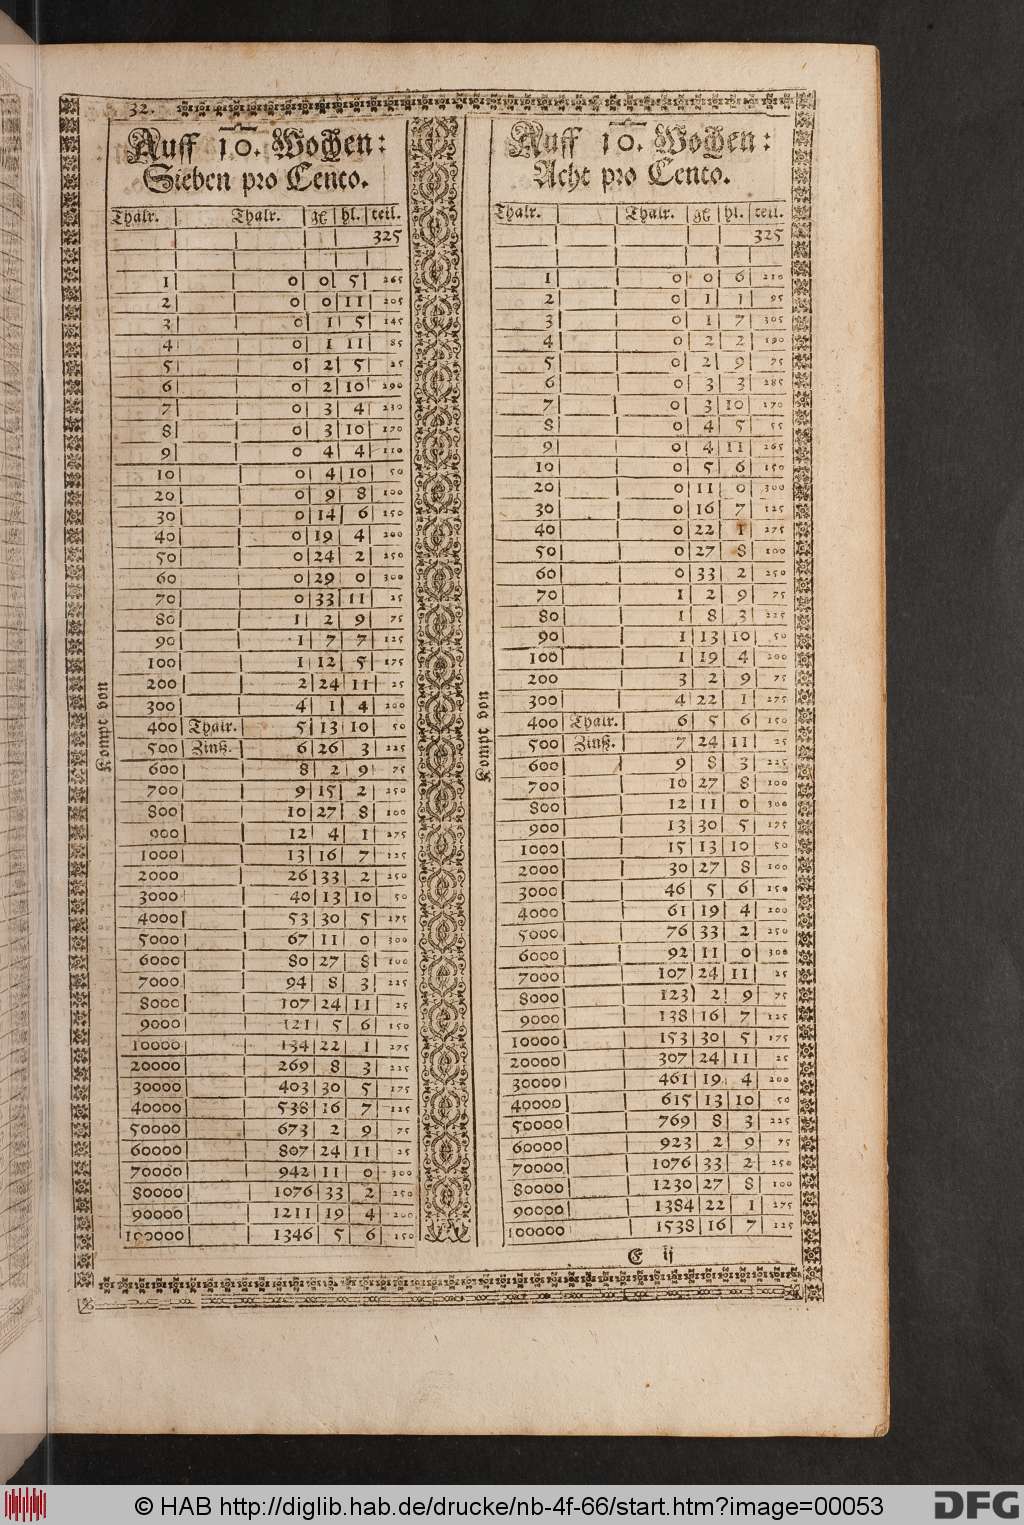 32.
Auff 10. Wochen:
Sieben pro Cento.
Thalr. Thalr. gℓ hl. teil.
325
1 0 0 5 265
2 0 0 11 205
3 0 1 5 145
4 0 1 11 85
5 0 2 5 25
6 0 2 10 290
7 0 3 4 230
8 0 3 10 170
9 0 4 4 110
10 0 4 10 50
20 0 9 8 100
30 0 14 6 150
40 0 19 4 200
50 0 24 2 250
60 0 29 0 300
70 0 33 11 25
80 1 2 9 75
90 1 7 7 125
100 1 12 5 175
200 2 24 11 25
300 4 1 4 200
400 Thalr. 5 13 10 50
500 Zinß. 6 26 3 225
600 8 2 9 75
700 9 15 2 250
800 10 27 8 100
900 12 4 1 275
1000 13 16 7 125
2000 26 33 2 250
3000 40 13 10 50
4000 53 30 5 175
5000 67 11 0 300
6000 80 27 8 100
7000 94 8 3 225
8000 107 24 11 25
9000 121 5 6 150
10000 134 22 1 275
20000 269 8 3 225
30000 403 30 5 175
40000 538 16 7 125
50000 673 2 9 75
60000 807 24 11 25
70000 942 11 0 300
80000 1076 33 2 250
90000 1211 19 4 200
100000 1346 5 6 150
Kompt von
Auff 10. Wochen:
Acht pro Cento.
Thalr. Thalr. gℓ hl. teil.
325
1 0 0 6 210
2 0 1 1 95
3 0 1 7 305
4 0 2 2 190
5 0 2 9 75
6 0 3 3 285
7 0 3 10 170
8 0 4 5 55
9 0 4 11 265
10 0 5 6 150
20 0 11 0 300
30 0 16 7 125
40 0 22 1 275
50 0 27 8 100
60 0 33 2 250
70 1 2 9 75
80 1 8 3 225
90 1 13 10 50
100 1 19 4 200
200 3 2 9 75
300 4 22 1 275
400 Thalr. 6 5 6 150
500 Zinß. 7 24 11 25
600 9 8 3 225
700 10 27 8 100
800 12 11 0 300
900 13 30 5 175
1000 15 13 10 50
2000 30 27 8 100
3000 46 5 6 150
4000 61 19 4 200
5000 76 33 2 250
6000 92 11 0 300
7000 107 24 11 25
8000 123 2 9 75
9000 138 16 7 125
10000 153 30 5 175
20000 307 24 11 25
30000 461 19 4 200
40000 615 13 10 50
50000 769 8 3 225
60000 923 2 9 75
70000 1076 33 2 250
80000 1230 27 8 100
90000 1384 22 1 275
100000 1538 16 7 125
Kompt von
E ij
© HAB http://diglib.hab.de/drucke/nb-4f-66/start.htm?image=00053
DFG